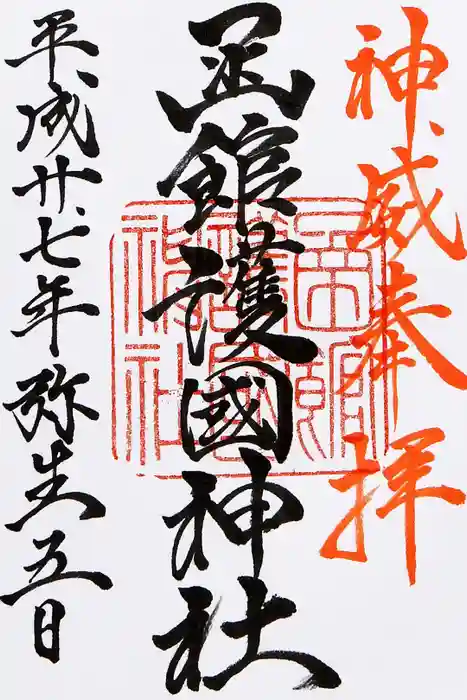 神威奉拝
函館護國神社
平成廿七年弥生五日
函館護國神社